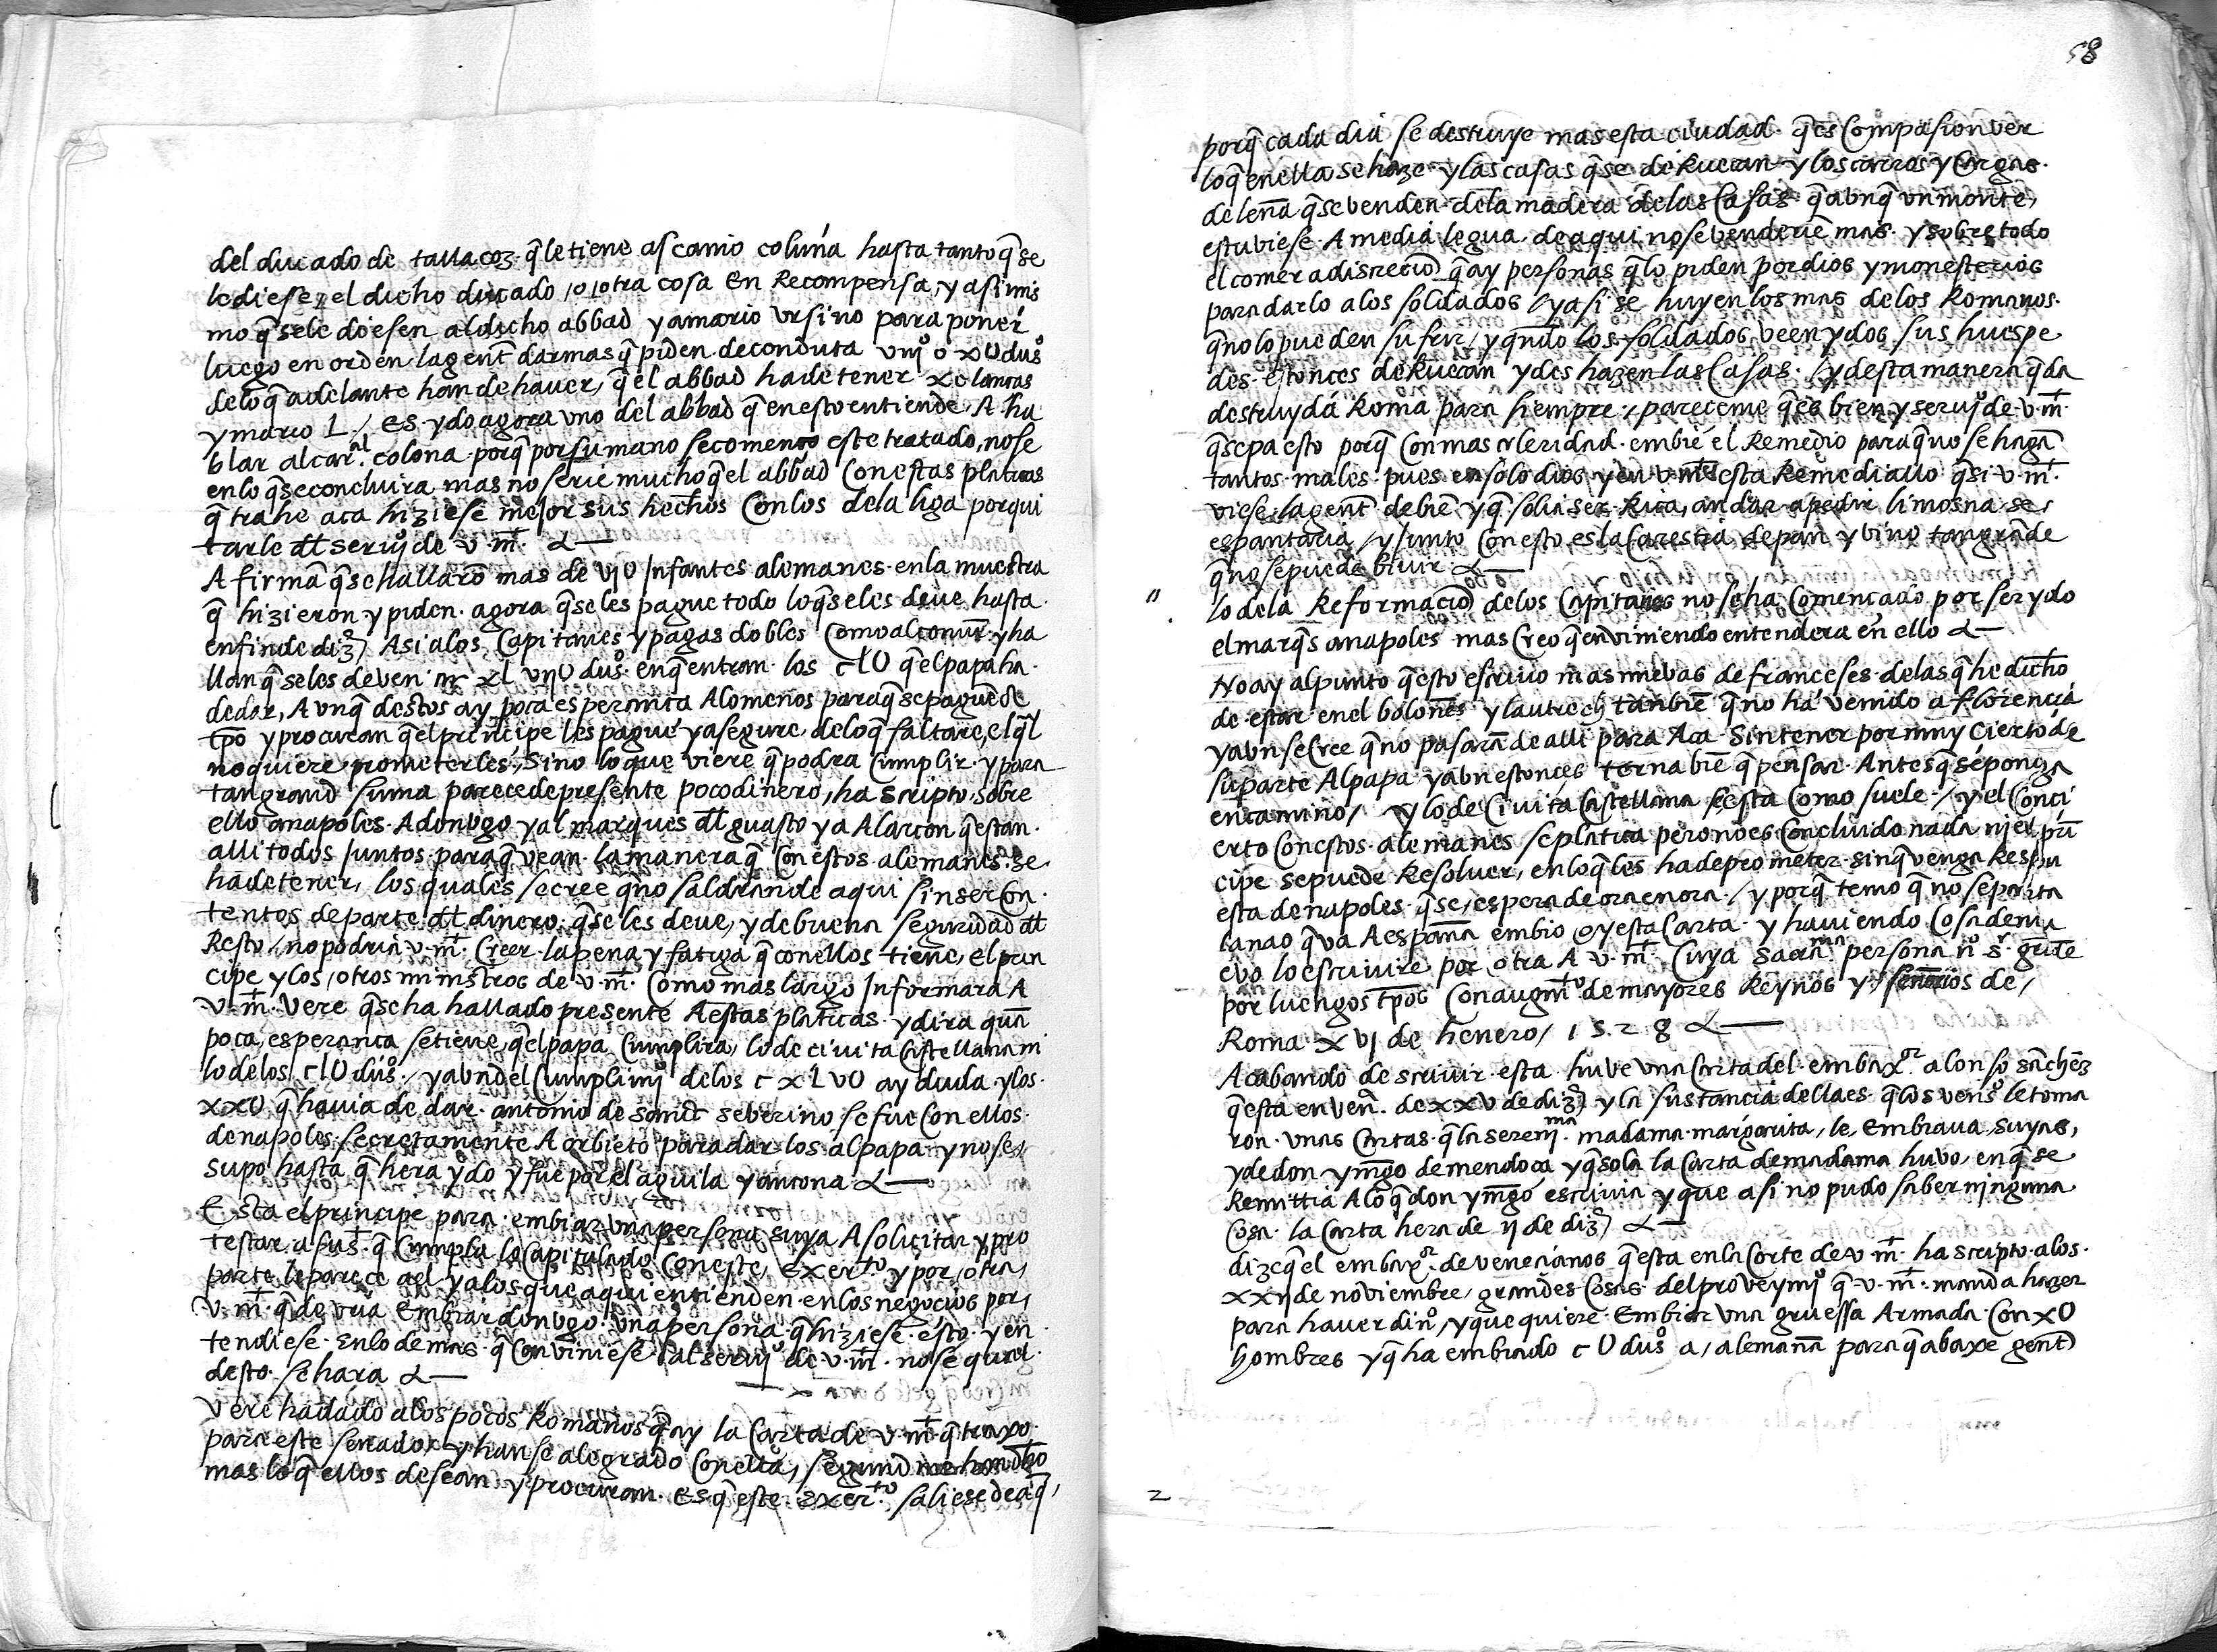 del ducado de tallacoz q̃ le tiene ascanio coluña hasta tanto q̃ se
le diese, el dicho ducado /o/otra cosa En Recompensa, y asimis
mo q̃ sele diesen al dicho abbad y a mario ursino para poner
luego en orden la gent̃ darmas q̃ piden de conduta viij° o xU dus°
de lo q̃ adelante han de haver, q̃ el abbad ha de tener xc lanças
y mario L / es ydo agora uno del abbad q̃ en esto entiende A ha
blar al car.al colona porq̃ por su mano se començo este tratado, no se
en lo q̃ se concluira mas no serie mucho q̃ el abbad Con estas platicas
q̃ trahe aca hiziese mejor sus hechos Con los de la liga por qui
tarle dl̃ serui° de v. mt.
Afirmã q̃ se hallarõ mas de vjU Infantes alemanes en la muestra
q̃ hizieron y piden agora q̃ se les pague todo lo q̃ se les deve hasta
en fin de diz.e Asi a los Capitanes y pagas dobles Como al comũ y ha
llan q̃ se les deven xl viijU dus° en q̃ entran los clU q̃ el papa ha
de dar, Aunq̃ destos ay poca esperança Alomenos para q̃ se paguẽ de
tpõ y procuran q̃ el principe les pague y asegure de lo q̃ faltare, el q̃l
no quiere prometerles, Sino lo que viere q̃ podra Cumplir y para
tan grand suma parece de presente poco dinero, ha scripto sobre
ello a napoles A don ugo y al marques dl̃ guasto y a Alarcon q̃ estan
alli todos Juntos para q̃ vean la manera q̃ Con estos alemanes se
ha de tener, los quales se cree q̃ no saldran de aqui sin ser Con
tentos de parte dl̃ dinero q̃ se les deve, y de buena seguridad dl̃
Resto / no podria v. mt. Creer la pena y fatiga q̃ con ellos tiene, el prin
cipe y los / otros ministros de v. mt. Como mas largo Informara A
v. mt. Vere q̃ se ha hallado presente A estas platicas y dira quã
poca esperança se tiene q̃ el papa Cumplira, lo de civita castellana ni
lo de los clU dus° / y aun del Cumplimi° de los cxlvU ay duda y los
xxU q̃ havia de dar antonio de sanct severino se fue Con ellos
de napoles secretamente A orbieto para darlos al papa y no se
supo hasta q̃ hera ydo y fue por el aguila y ancona
Esta el principe para embiar una persona suya A solicitar y pro
testar a su st. q̃ Cumpla lo Capitulado Con este Exer.to y por / otra
parte le parece a el y a los que aqui entienden en los negocios por
v. mt. q̃ devria Embiar don ugo una persona q̃ hiziese esto y en
tendiese En lo demas q̃ Conviniese al serui° de v. mt. no se que
desto se hara
Vere ha dado a los pocos Romanos q̃ ay la Carta de v. mt. q̃ traxo
para este senado y han se alegrado Con ella, segund me han dho
mas lo q̃ ellos desean y procuran es q̃ este exer.to saliese de aq̃,
58
porq̃ cada dia se destruye mas esta ciudad q̃ es Compasion ver
lo q̃ en ella se haze y las casas q̃ se deRuecan y los carros y Cargas
de leña q̃ se venden de la madera de las Casas q̃ aunq̃ un monte
estubiese A media legua de aqui no se venderiẽ mas y sobre todo
el comer a disreciõ q̃ ay personas q̃ lo piden por dios y monesterios
para darlo a los soldados / y asi se huyen los mas de los Romanos
q̃ no lo pueden sufrir / y q̃ndo los soldados veen ydos sus huespe
des estonces deRuecan y deshazen las Casas / y desta manera q̃da
destruyda Roma para siempre / pareceme q̃ es bien y serui° de v. mt.
q̃ sepa esto porq̃ Con mas celeridad embie el Remedio para q̃ no se hagã
tantos males pues en solo dios y en v. mt. esta Remediallo q̃ si v. mt.
viese la gent̃ de biẽ y q̃ solia ser Rica, andar a pedir limosna se
espantaria / y Junto Con esto es la Carestia de pan y vino tan grãde
q̃ no se puede bivir
lo de la Reformaciõ de los Capitanes no se ha Començado por ser ydo
el marq̃s a napoles mas Creo q̃ en viniendo entendera en ello
No ay al punto q̃ esto escrivo mas nuevas de franceses de las q̃ he dicho
de estar en el bolones y lautrech tanbiẽ q̃ no ha venido a florencia
y aun se Cree q̃ no pasarã de alli para Aca Sin tener por muy Cierto de
su parte Al papa y aun estonces terna biẽ q̃ pensar Antes q̃ se ponga
en camino / y lo de Civita Castellana se esta Como suele / y el Conci
erto Con estos alemanes se platica pero no es Concluido nada ni el prĩ
cipe se puede Resolver, en lo q̃ les ha de prometer sin q̃ venga Respu
esta de napoles q̃ se espera de ora en ora / y porq̃ temo q̃ no se parta
la nao q̃ va A españa embio oy esta Carta y haviendo Cosa de nu
evo lo escrivire por otra A v. mt. Cuya sacra.ma persona nr° sr. guarde
por luengos tpõs Con augmt.° de mayores Reynos y señorios de /
Roma xvj de henero / 1528
Acabando de scrivir esta huve una Carta del embax.or alonso sãchez
q̃ esta en ven.a de xxv de diz.e y la sustancia della es q̃ los venos le toma
ron unas Cartas q̃ la sereni.ma madama margarita, le Embiava suyas,
y de don ymgo de mendoça y q̃ sola la Carta de madama huvo, en q̃ se
Remittia A lo q̃ don ymgo escrivia y que asi no pudo saber ninguna
Cosa la Carta hera de ij de diz.e
dize q̃ el embax.or de venecianos q̃ esta en la Corte de v. mt. ha scripto a los
xxij de noviembre, grandes Cosas del proveymi° q̃ v. mt. manda hazer
para haver din°, y que quiere Embiar una gruessa Armada Con xU
hombres y q̃ ha embiado cU dus° a / alemaña para q̃ abaxe gent̃
2